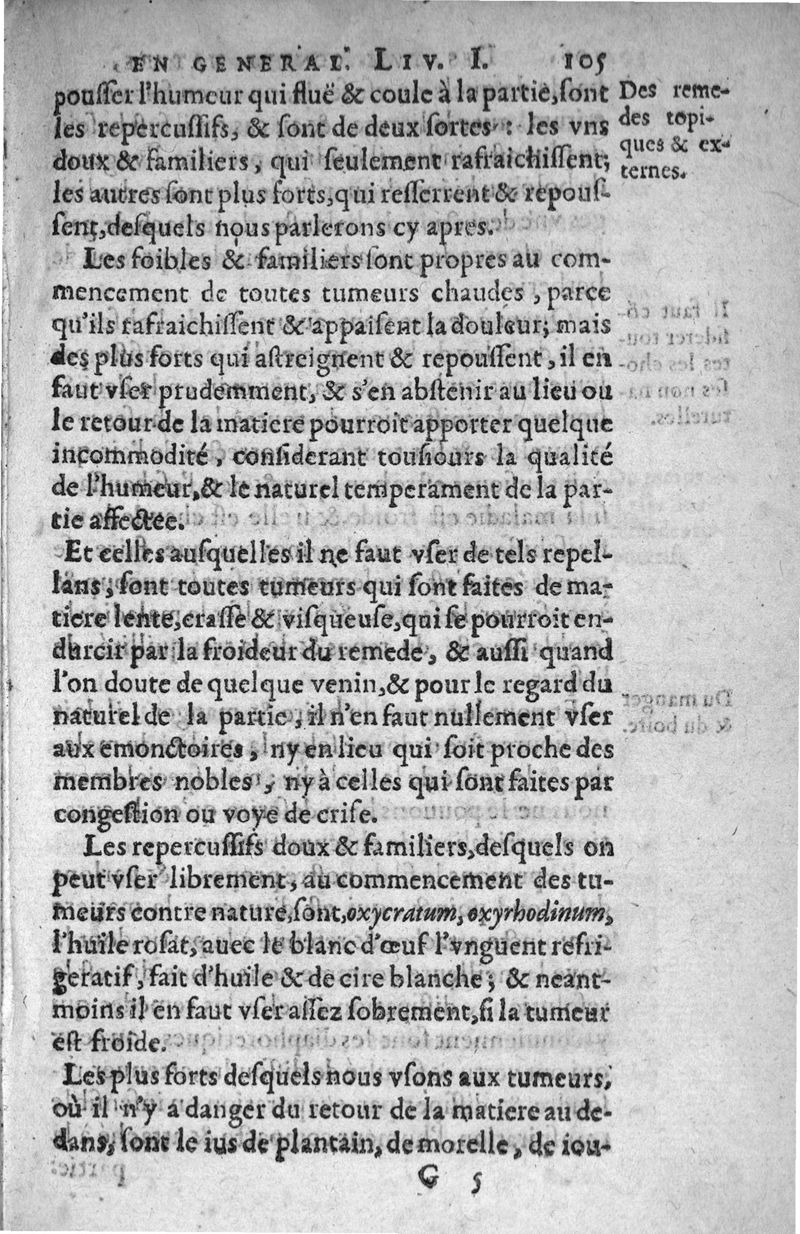 EN GENERAL. LIV. I. 105
pousser l'humeur qui fluë & coule à la partie, sont
les repercussifs, & sont de deux sortes : les vns
doux & familiers, qui seulement rafraichissent;
les autres sont plus forts, qui resserrent & repous-
sent, desquels nous parlerons cy apres.
Des reme-
des topi-
ques & ex-
ternes.
Les foibles & familiers sont propres au com-
mencement de toutes tumeurs chaudes, parce
qu'ils rafraichissent & appaisent la douleur; mais
des plus forts qui astreignent & repoussent, il en
faut vser prudemment, & s'en abstenir au lieu ou
le retour de la matiere pourroit apporter quelque
incommodité, considerant tousiours la qualité
de l'humeur, & le naturel temperament de la par-
tie affectée.
Et celles ausquelles il ne faut vser de tels repel-
lans, sont toutes tumeurs qui sont faites de ma-
tiere lente, crasse & visqueuse, qui se pourroit en-
durcir par la froideur du remede, & aussi quand
l'on doute de quelque venin, & pour le regard du
naturel de la partie, il n'en faut nullement vser
aux emonctoires, ny en lieu qui soit proche des
membres nobles, ny à celles qui sont faites par
congestion ou voye de crise.
Les repercussifs doux & familiers, desquels on
peut vser librement, au commencement des tu-
meurs contre nature, sont, oxycratum, oxyrhodinum,
l'huile rosat, auec le blanc d'œuf l'vnguent refri-
geratif, fait d'huile & de cire blanche; & neant-
moins il en faut vser assez sobrement, si la tumeur
est froide.
Les plus forts desquels nous vsons aux tumeurs,
où il n'y a danger du retour de la matiere au de-
dans, sont le ius de plantain, de morelle, de iou-
G 5